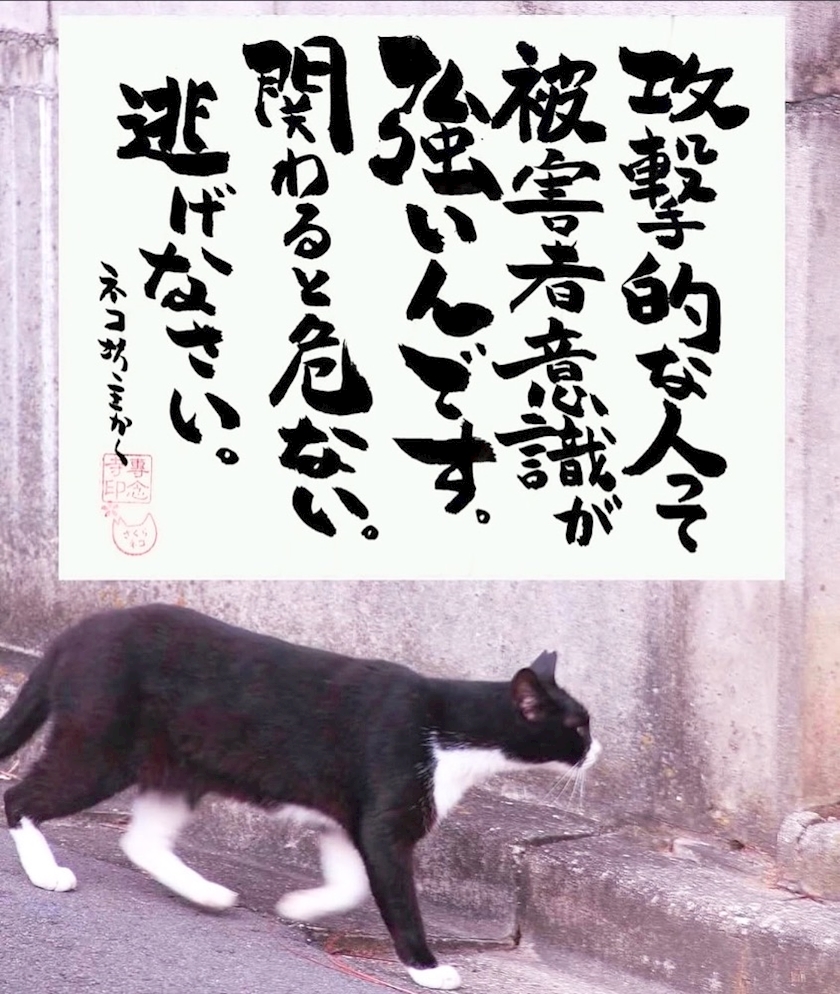 攻撃的な人って
被害者意識が
強いんです。
関わると危ない。
逃げなさい。
ネコ坊主かく
専念
寺印
さくら
ネコ